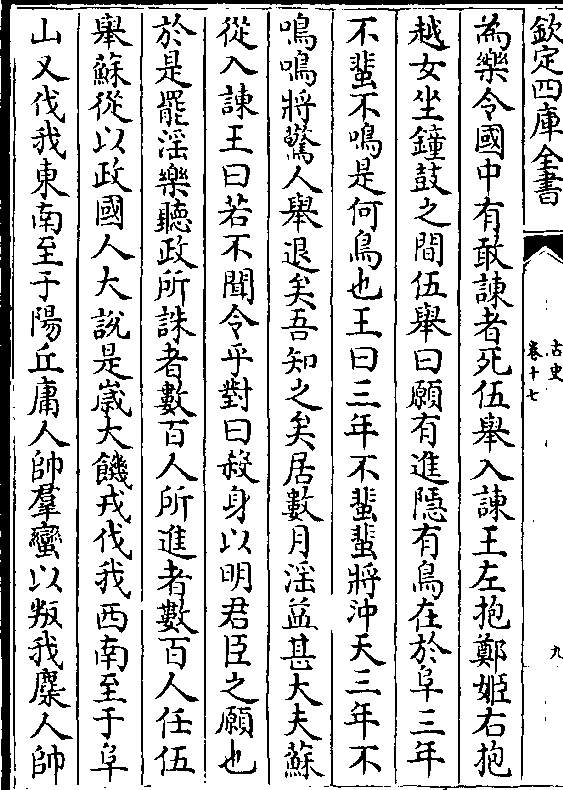 欽定四庫全書
古史
卷十七
九
為樂令國中有敢諫者死伍舉入諫王左抱鄭姬右抱
越女坐鐘鼓之間伍舉曰願有進隱有鳥在於阜三年
不蜚不鳴是何鳥也王曰三年不蜚蜚將沖天三年不
鳴鳴將驚人舉退矣吾知之矣居數月淫益甚大夫蘇
從入諫王曰若不聞令乎對曰殺身以明君臣之願也
於是罷淫樂聽政所誅者數百人所進者數百人任伍
舉蘇從以政國人大說是歲大饑戎伐我西南至于阜
山又伐我東南至于陽丘庸人帥羣蠻以叛我麇人帥